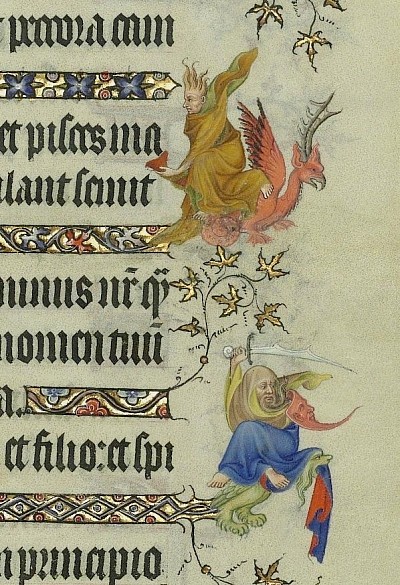 t pecora cam
et pisces ma
ulant semit
minus nr̄ q̄
nomen tuum
a.
et filio: et spi
n principio